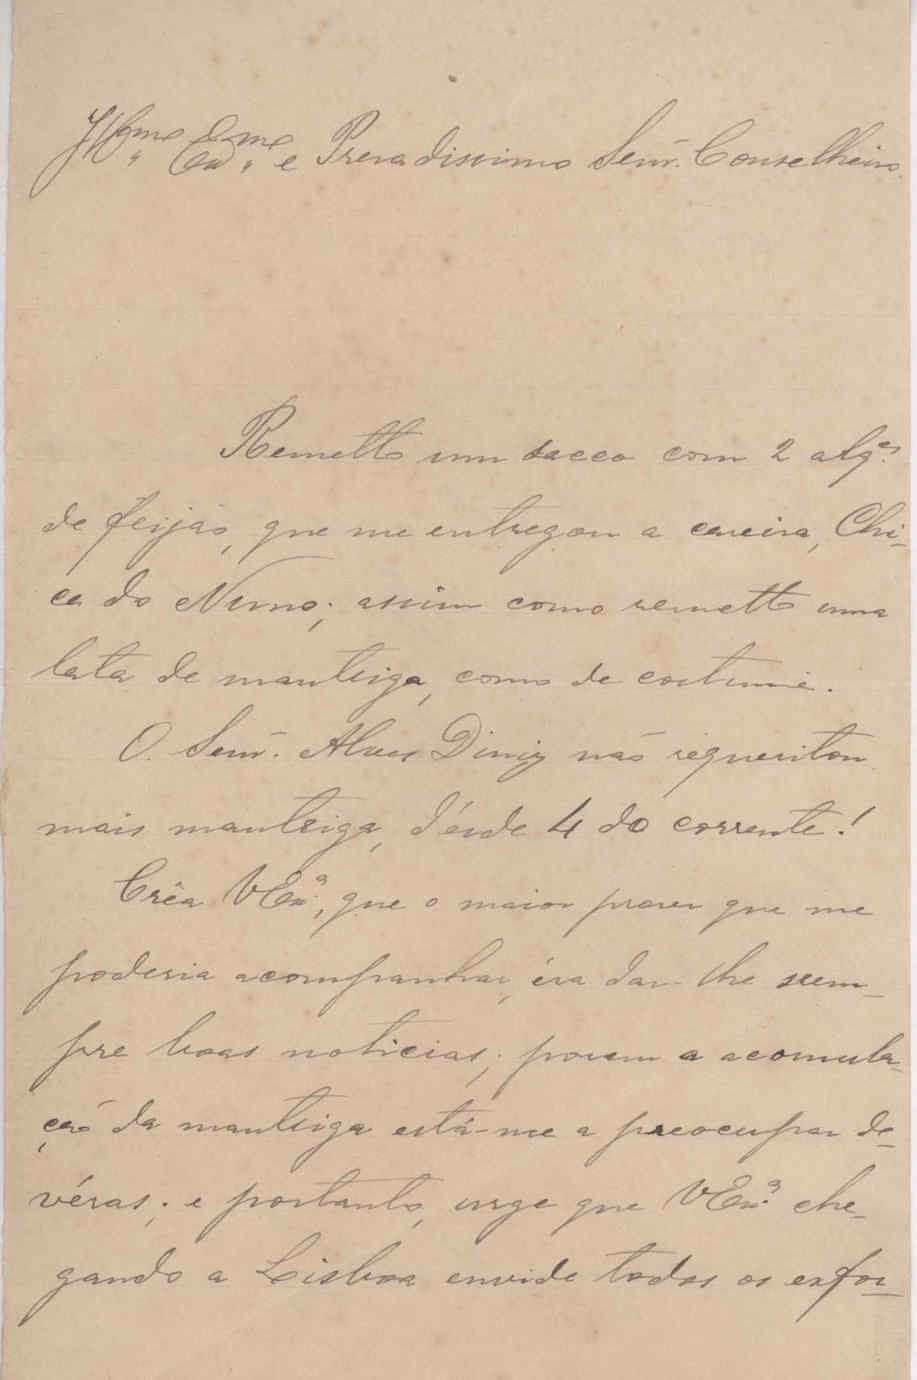 Illmo. Exmo. e Presadissimo Senr. Conselheiro.
Remetto um sacco com 2 alqes.
de feijão, que me entregou a caseira, Chi-
ca do Nuno; assim como remetto uma
lata de manteiga, como de costume.
O Senr. Alves Diniz não requisitou
mais manteiga, d'ésde 4 do corrente!
Crêa VExa., que o maior praser que me
poderia acompanhar, éra dar-lhe sem-
pre boas noticias; porem a acomula-
ção da manteiga está-me a preocupar de-
véras; e portanto, urge que VExa. che-
gando a Lisboa envide todos os esfor-